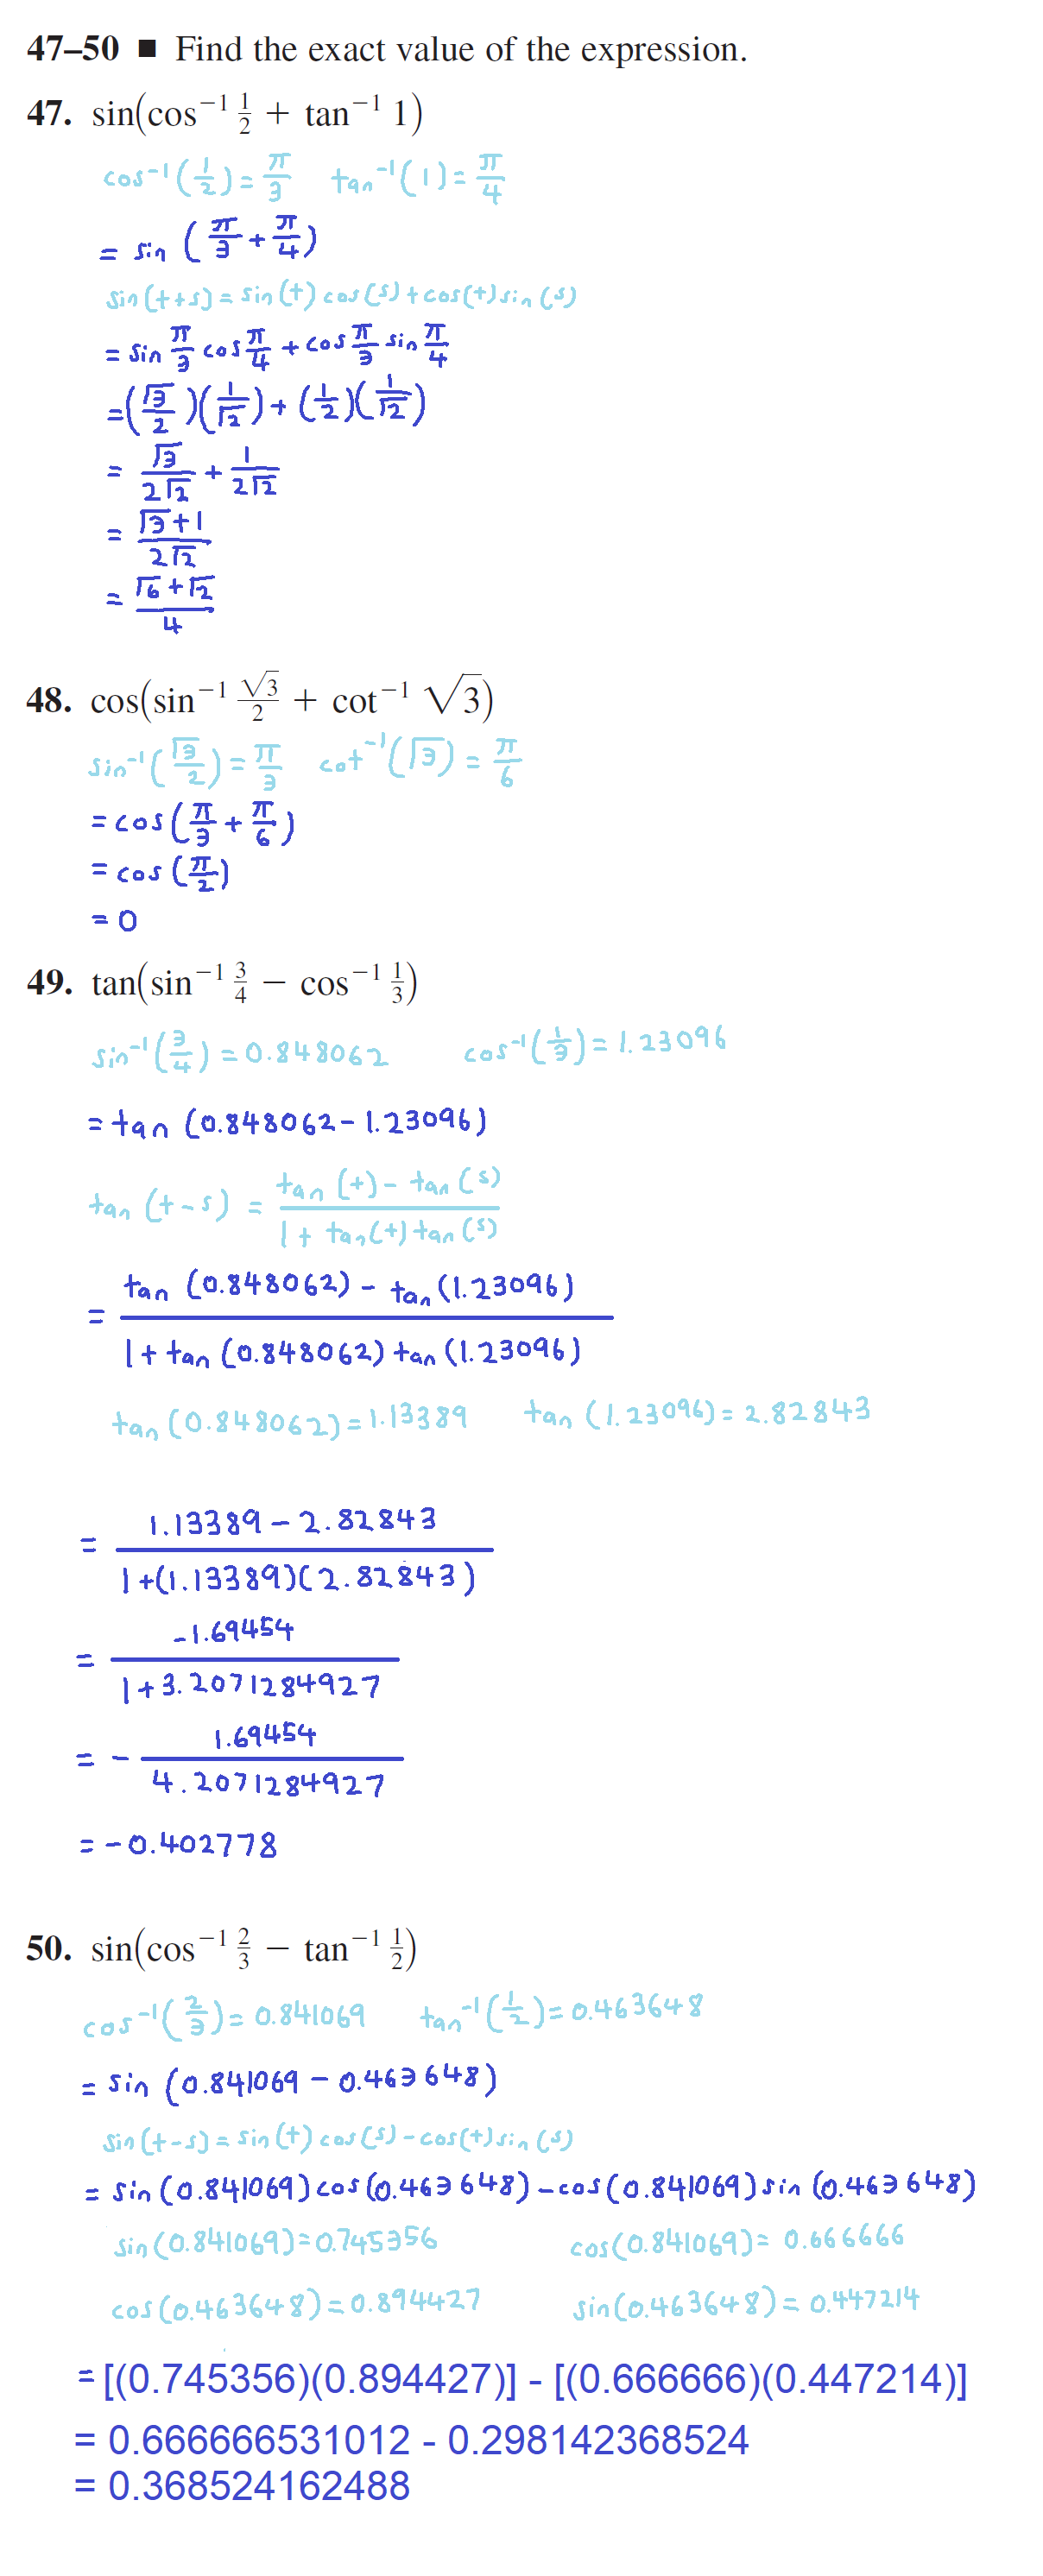 47–50 ■ Find the exact value of the expression.
47. sin(cos⁻¹ 1/2 + tan⁻¹ 1)
cos⁻¹(1/2) = π/3 tan⁻¹(1) = π/4
= sin (π/3 + π/4)
sin(t+s) = sin(t) cos(s) + cos(t) sin(s)
= sin π/3 cos π/4 + cos π/3 sin π/4
= (√3/2)(1/√2) + (1/2)(1/√2)
= √3/2√2 + 1/2√2
= (√3+1)/2√2
= (√6+√2)/4
48. cos(sin⁻¹ √3/2 + cot⁻¹ √3)
sin⁻¹(√3/2) = π/3 cot⁻¹(√3) = π/6
= cos(π/3 + π/6)
= cos(π/2)
= 0
49. tan(sin⁻¹ 3/4 − cos⁻¹ 1/3)
sin⁻¹(3/4) = 0.848062 cos⁻¹(1/3) = 1.23096
= tan (0.848062 − 1.23096)
tan (t−s) = (tan(t) − tan(s))/(1 + tan(t) tan(s))
= (tan (0.848062) − tan(1.23096))/(1 + tan (0.848062) tan (1.23096))
tan (0.848062) = 1.13389 tan (1.23096) = 2.82843
= (1.13389 − 2.82843)/(1+(1.13389)(2.82843))
= −1.69454/(1+3.2071284927)
= − 1.69454/4.2071284927
= −0.402778
50. sin(cos⁻¹ 2/3 − tan⁻¹ 1/2)
cos⁻¹(2/3) = 0.841069 tan⁻¹(1/2) = 0.463648
= sin (0.841069 − 0.463648)
sin(t−s) = sin(t) cos(s) − cos(t) sin(s)
= sin(0.841069)cos(0.463648) − cos(0.841069)sin(0.463648)
sin(0.841069)=0.745356 cos(0.841069)= 0.666666
cos(0.463648)=0.894427 sin(0.463648)= 0.447214
= [(0.745356)(0.894427)] - [(0.666666)(0.447214)]
= 0.666666531012 - 0.298142368524
= 0.368524162488